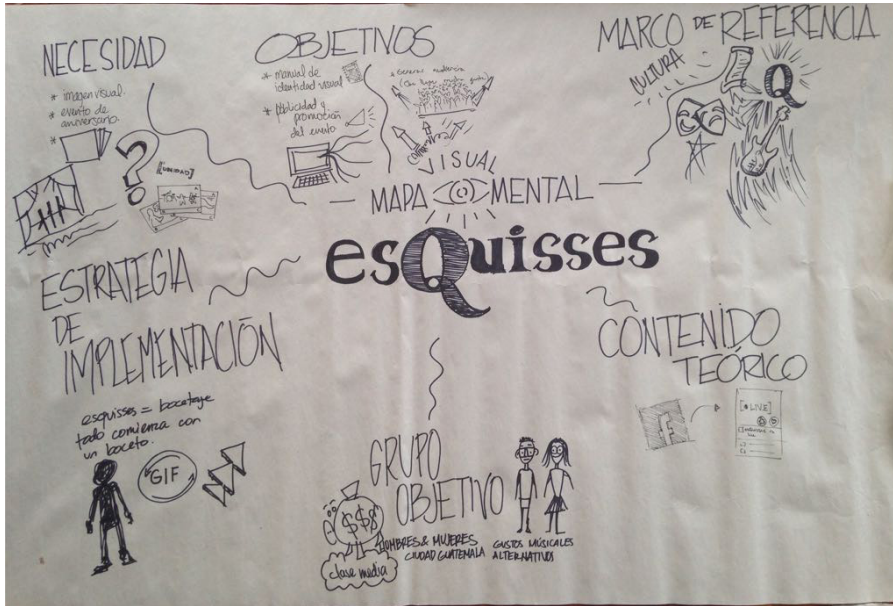 NECESIDAD
* imagen visual.
* evento de
aniversario.
*
?
OBJETIVOS
* manual de
identidad visual
* publicidad y
promoción
del evento
* Generar audiencia
MARCO DE REFERENCIA
CULTURA
Q
VISUAL
MAPA MENTAL
esQuisses
ESTRATEGIA
DE
IMPLEMENTACIÓN
esquisses = bocetaje
todo comienza con
un boceto.
GIF
CONTENIDO
TEÓRICO
F
[•LIVE]
GRUPO
OBJETIVO
$$$
clase media
HOMBRES & MUJERES
CIUDAD GUATEMALA
GUSTOS MÚSICALES
ALTERNATIVOS